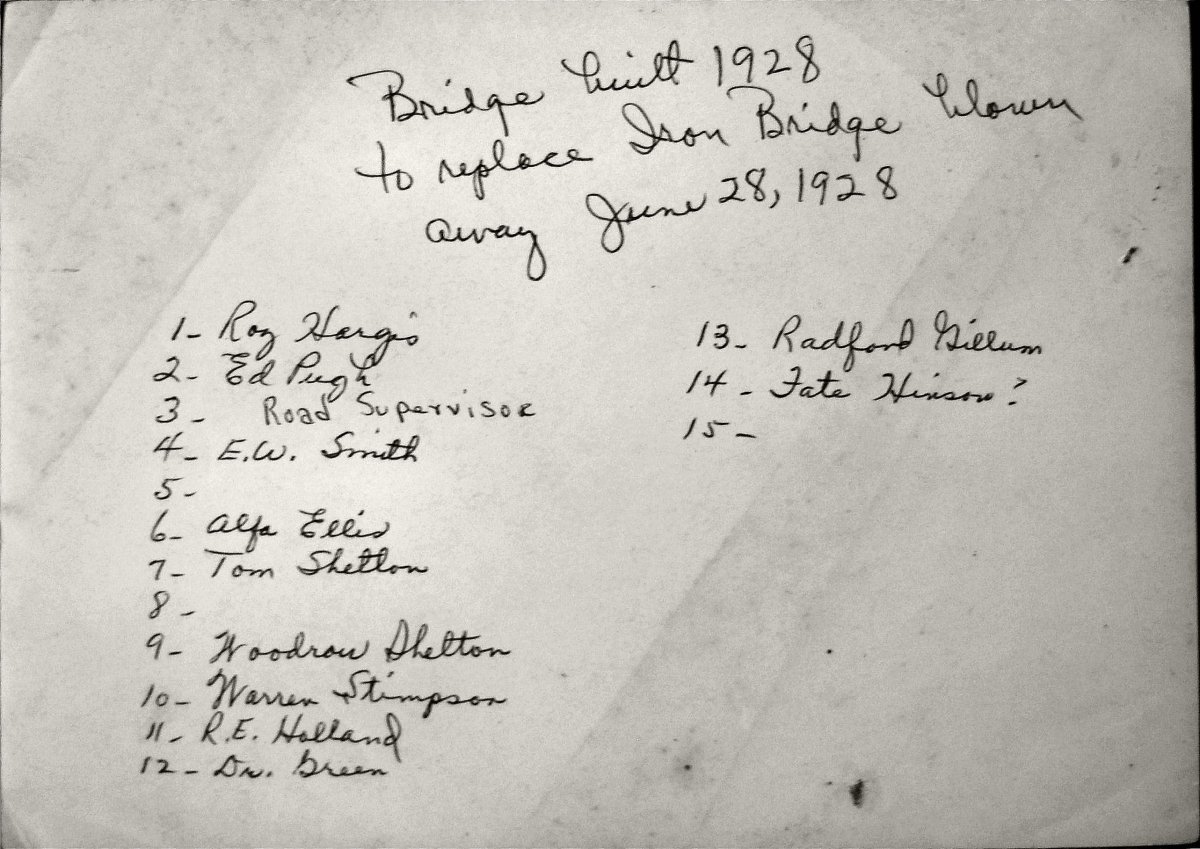 Bridge built 1928
to replace Iron Bridge blown
away June 28, 1928
1- Roy Hargis
2- Ed Pugh
3- Road Supervisor
4- E.W. Smith
5-
6- Alfa Ellis
7- Tom Shelton
8-
9- Woodrow Shelton
10- Warren Stimpson
11- R.E. Holland
12- Dr. Green
13- Radford Gillum
14- Fate Hinson?
15-